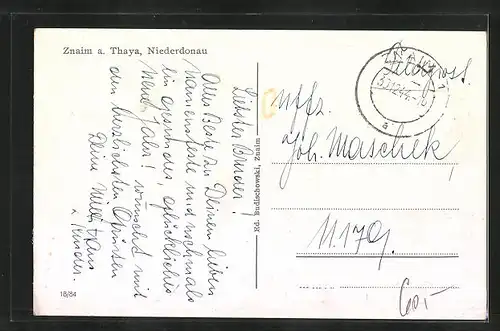 Znaim a. Thaya, Niederdonau
Liebster Bruder!
Alles Beste zu Deinem lieben
Namensfeste und nochmals
ein gesundes, glückliches
neues Jahr! wünscht mit
den herzlichsten Grüssen
Deine
Kinder.
18/84
Ed. Budischowski, Znaim
Feldpost
Uffz.
Joh. Maschek,
11.179.
60,-